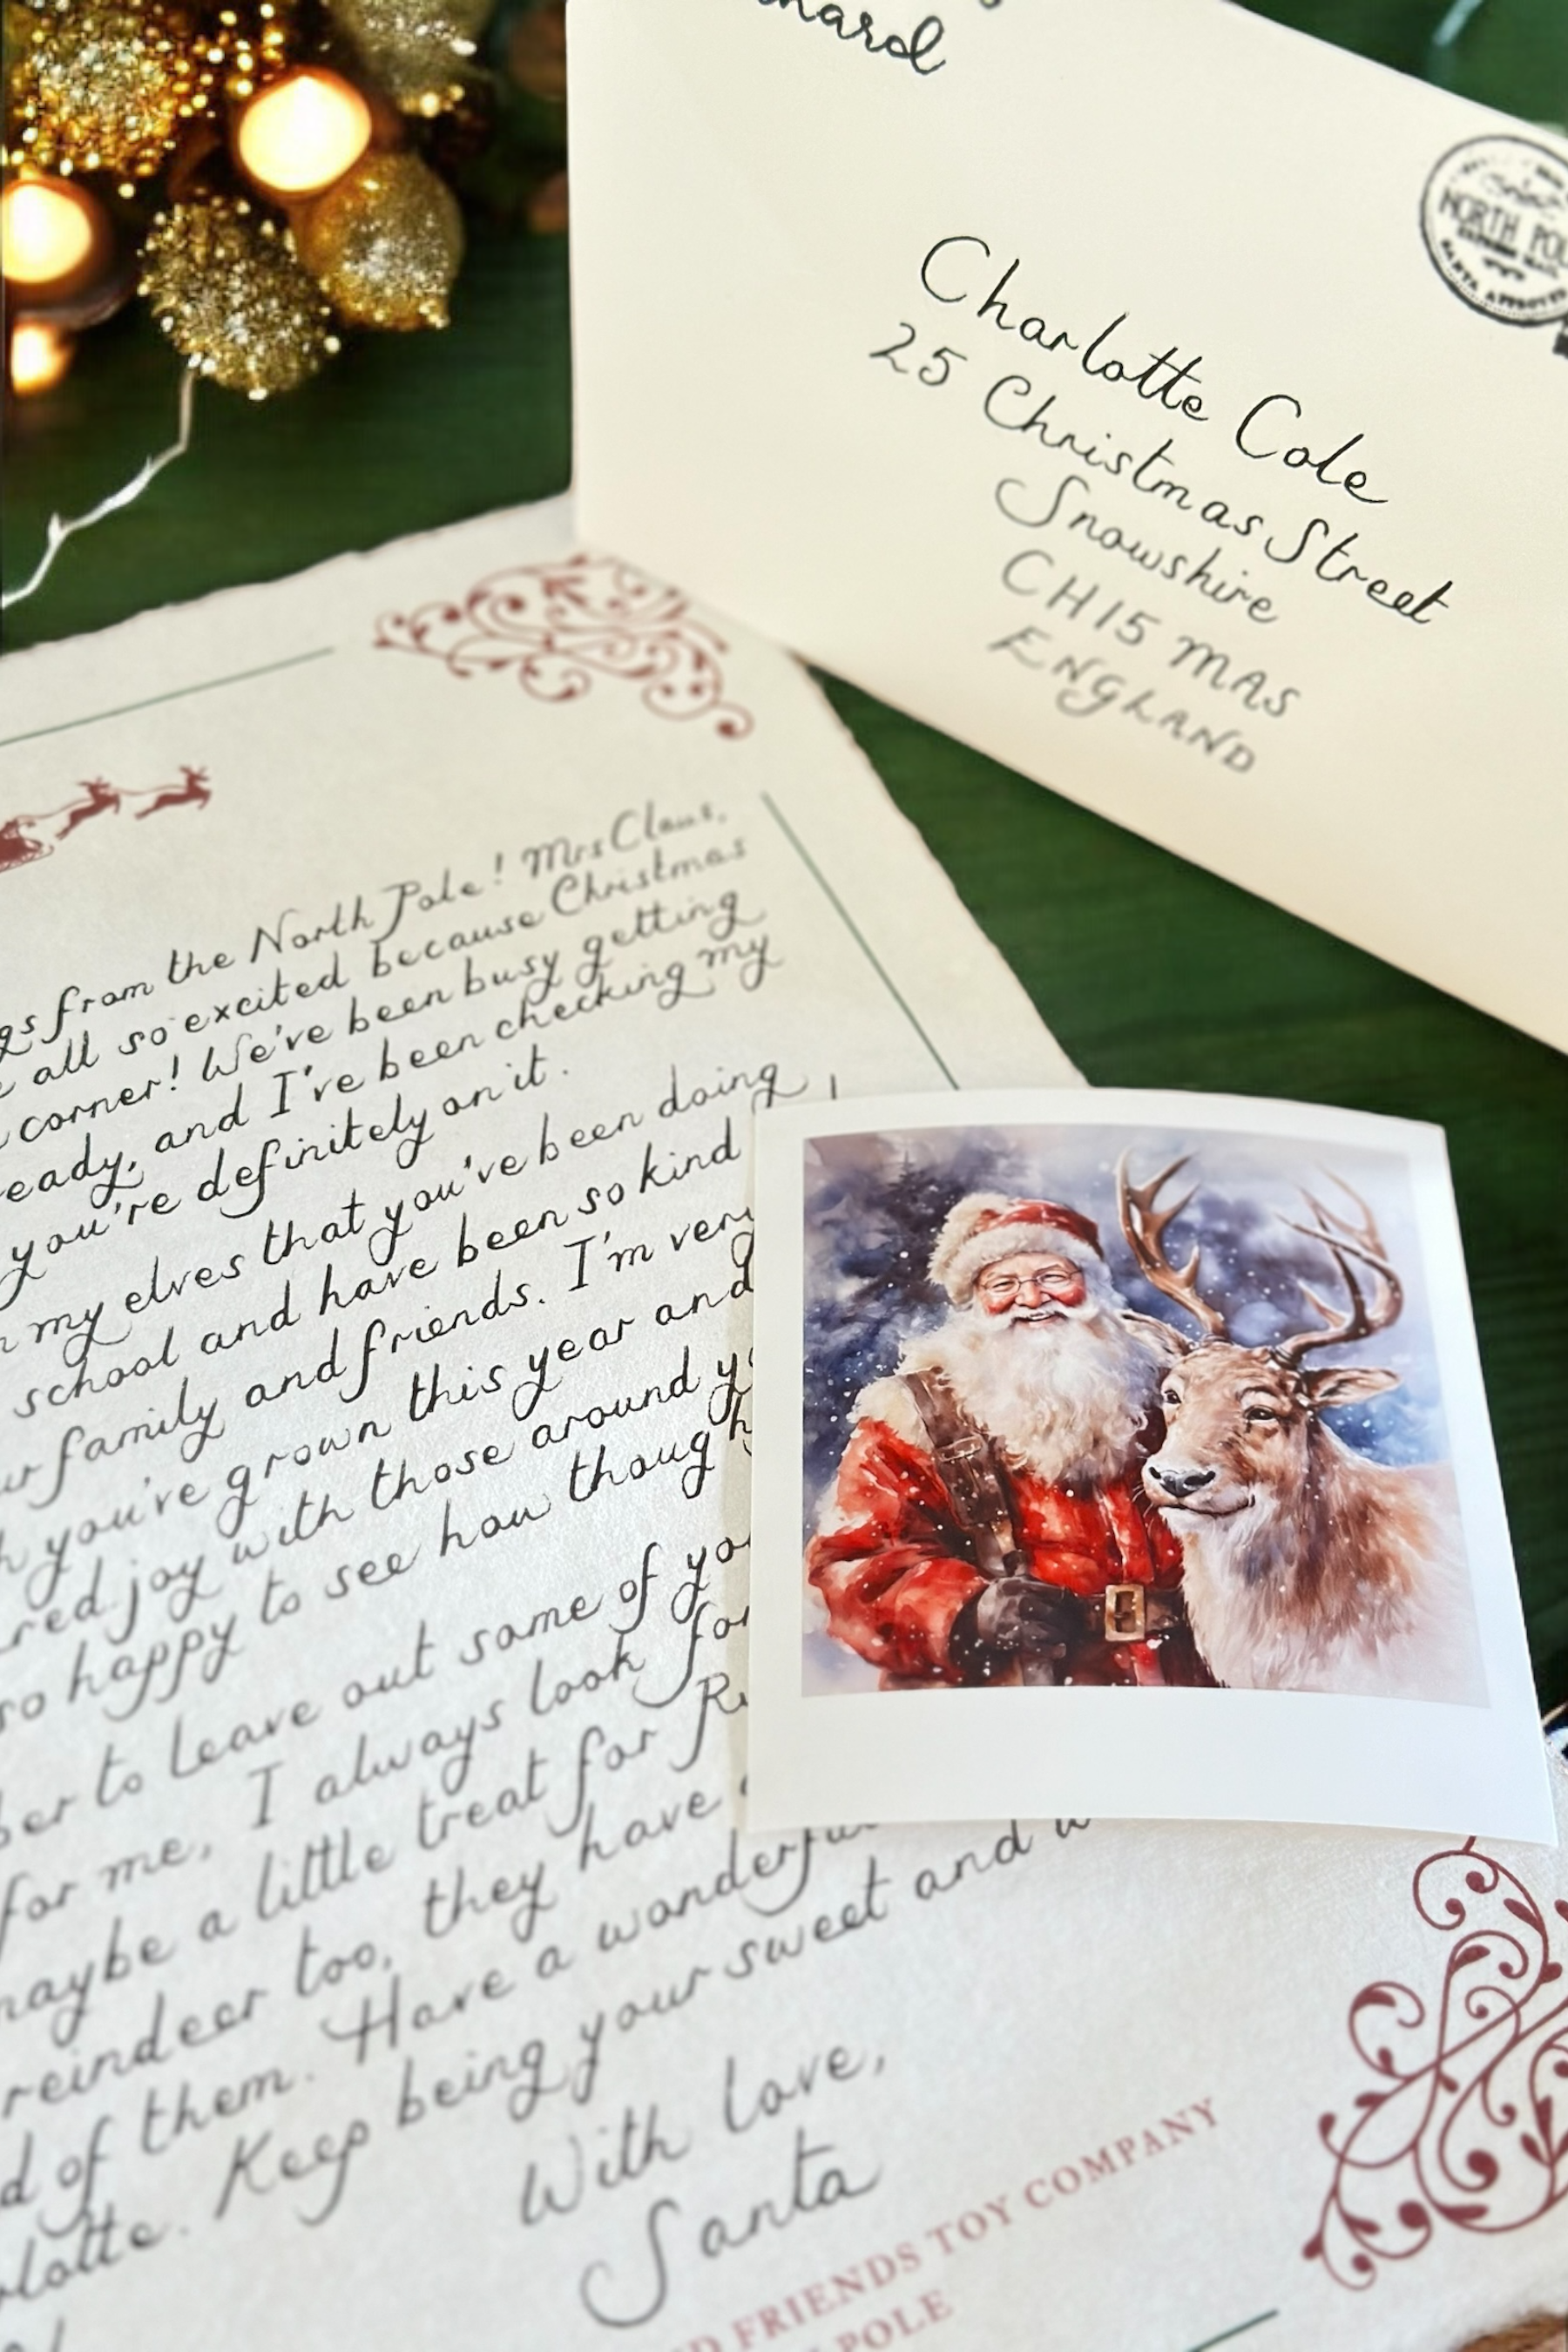 Charlotte Cole
25 Christmas Street
Snowshire
CH15 MAS
ENGLAND
NORTH
SANTA APPROVED
from the North Pole! Mrs Claus,
all so excited because Christmas
corner! We've been busy getting
and I've been checking my
you're definitely on it.
my elves that you've been doing
school and have been so kind
family and friends. I'm very
you've grown this year and
joy with those around
so happy to see how
to leave out some of
for me, I always look for
maybe a little treat for
reindeer too, they have
of them. Have a wonderful
Keep being your sweet and
With love,
Santa
FRIENDS TOY COMPANY
POLE